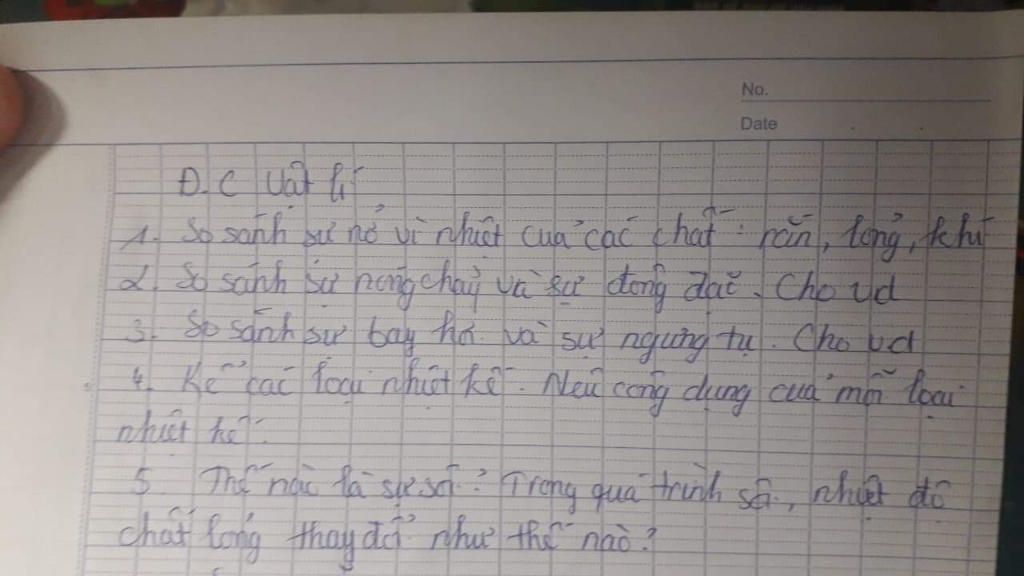 No.
Date
Đ.C Vật lí
1. So sánh sự nở vì nhiệt của các chất: rắn, lỏng, khí
2. So sánh sự nóng chảy và sự đông đặc. Cho vd
3. So sánh sự bay hơi và sự ngưng tụ. Cho vd
4. Kể các loại nhiệt kế. Nêu công dụng của mỗi loại
nhiệt kế.
5. Thế nào là sự sôi? Trong quá trình sôi, nhiệt độ
chất lỏng thay đổi như thế nào?